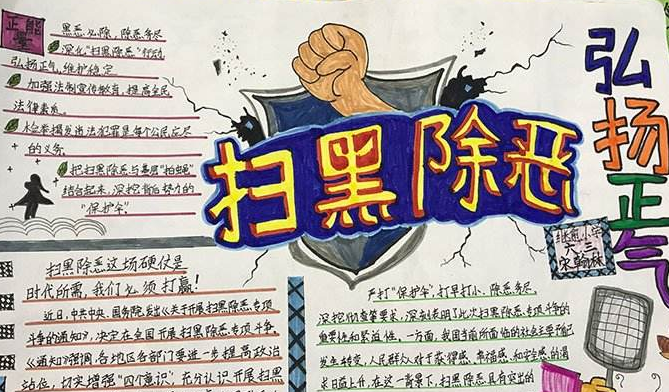 正能量
黑恶必除，除恶务尽
深化“扫黑除恶”行动
弘扬正气，维护稳定
加强法制宣传教育，提高全民
法律素质。
检举揭发违法犯罪是每个公民应尽
的义务。
把扫黑除恶与基层“拍蝇”
结合起来，深挖背后势力的
“保护伞”。
扫黑除恶
弘扬正气
扫黑除恶这场硬仗是
时代所需，我们必须打赢！
近日，中共中央、国务院发出《关于开展扫黑除恶专项
斗争的通知》，决定在全国开展扫黑除恶专项斗争。
《通知》强调，各地区各部门要进一步提高政治
站位，切实增强“四个意识”，充分认识开展扫黑
小学
六三
严打“保护伞”，打早打小，除恶务尽。
深挖彻查等要求，深刻表明了此次扫黑除恶专项斗争的
重要性和紧迫性。一方面，我国当前所面临的社会主要矛盾已
发生转变，人民群众对于获得感、幸福感和安全感的追
求日益上升，在这一背景下，扫黑除恶具有突出的